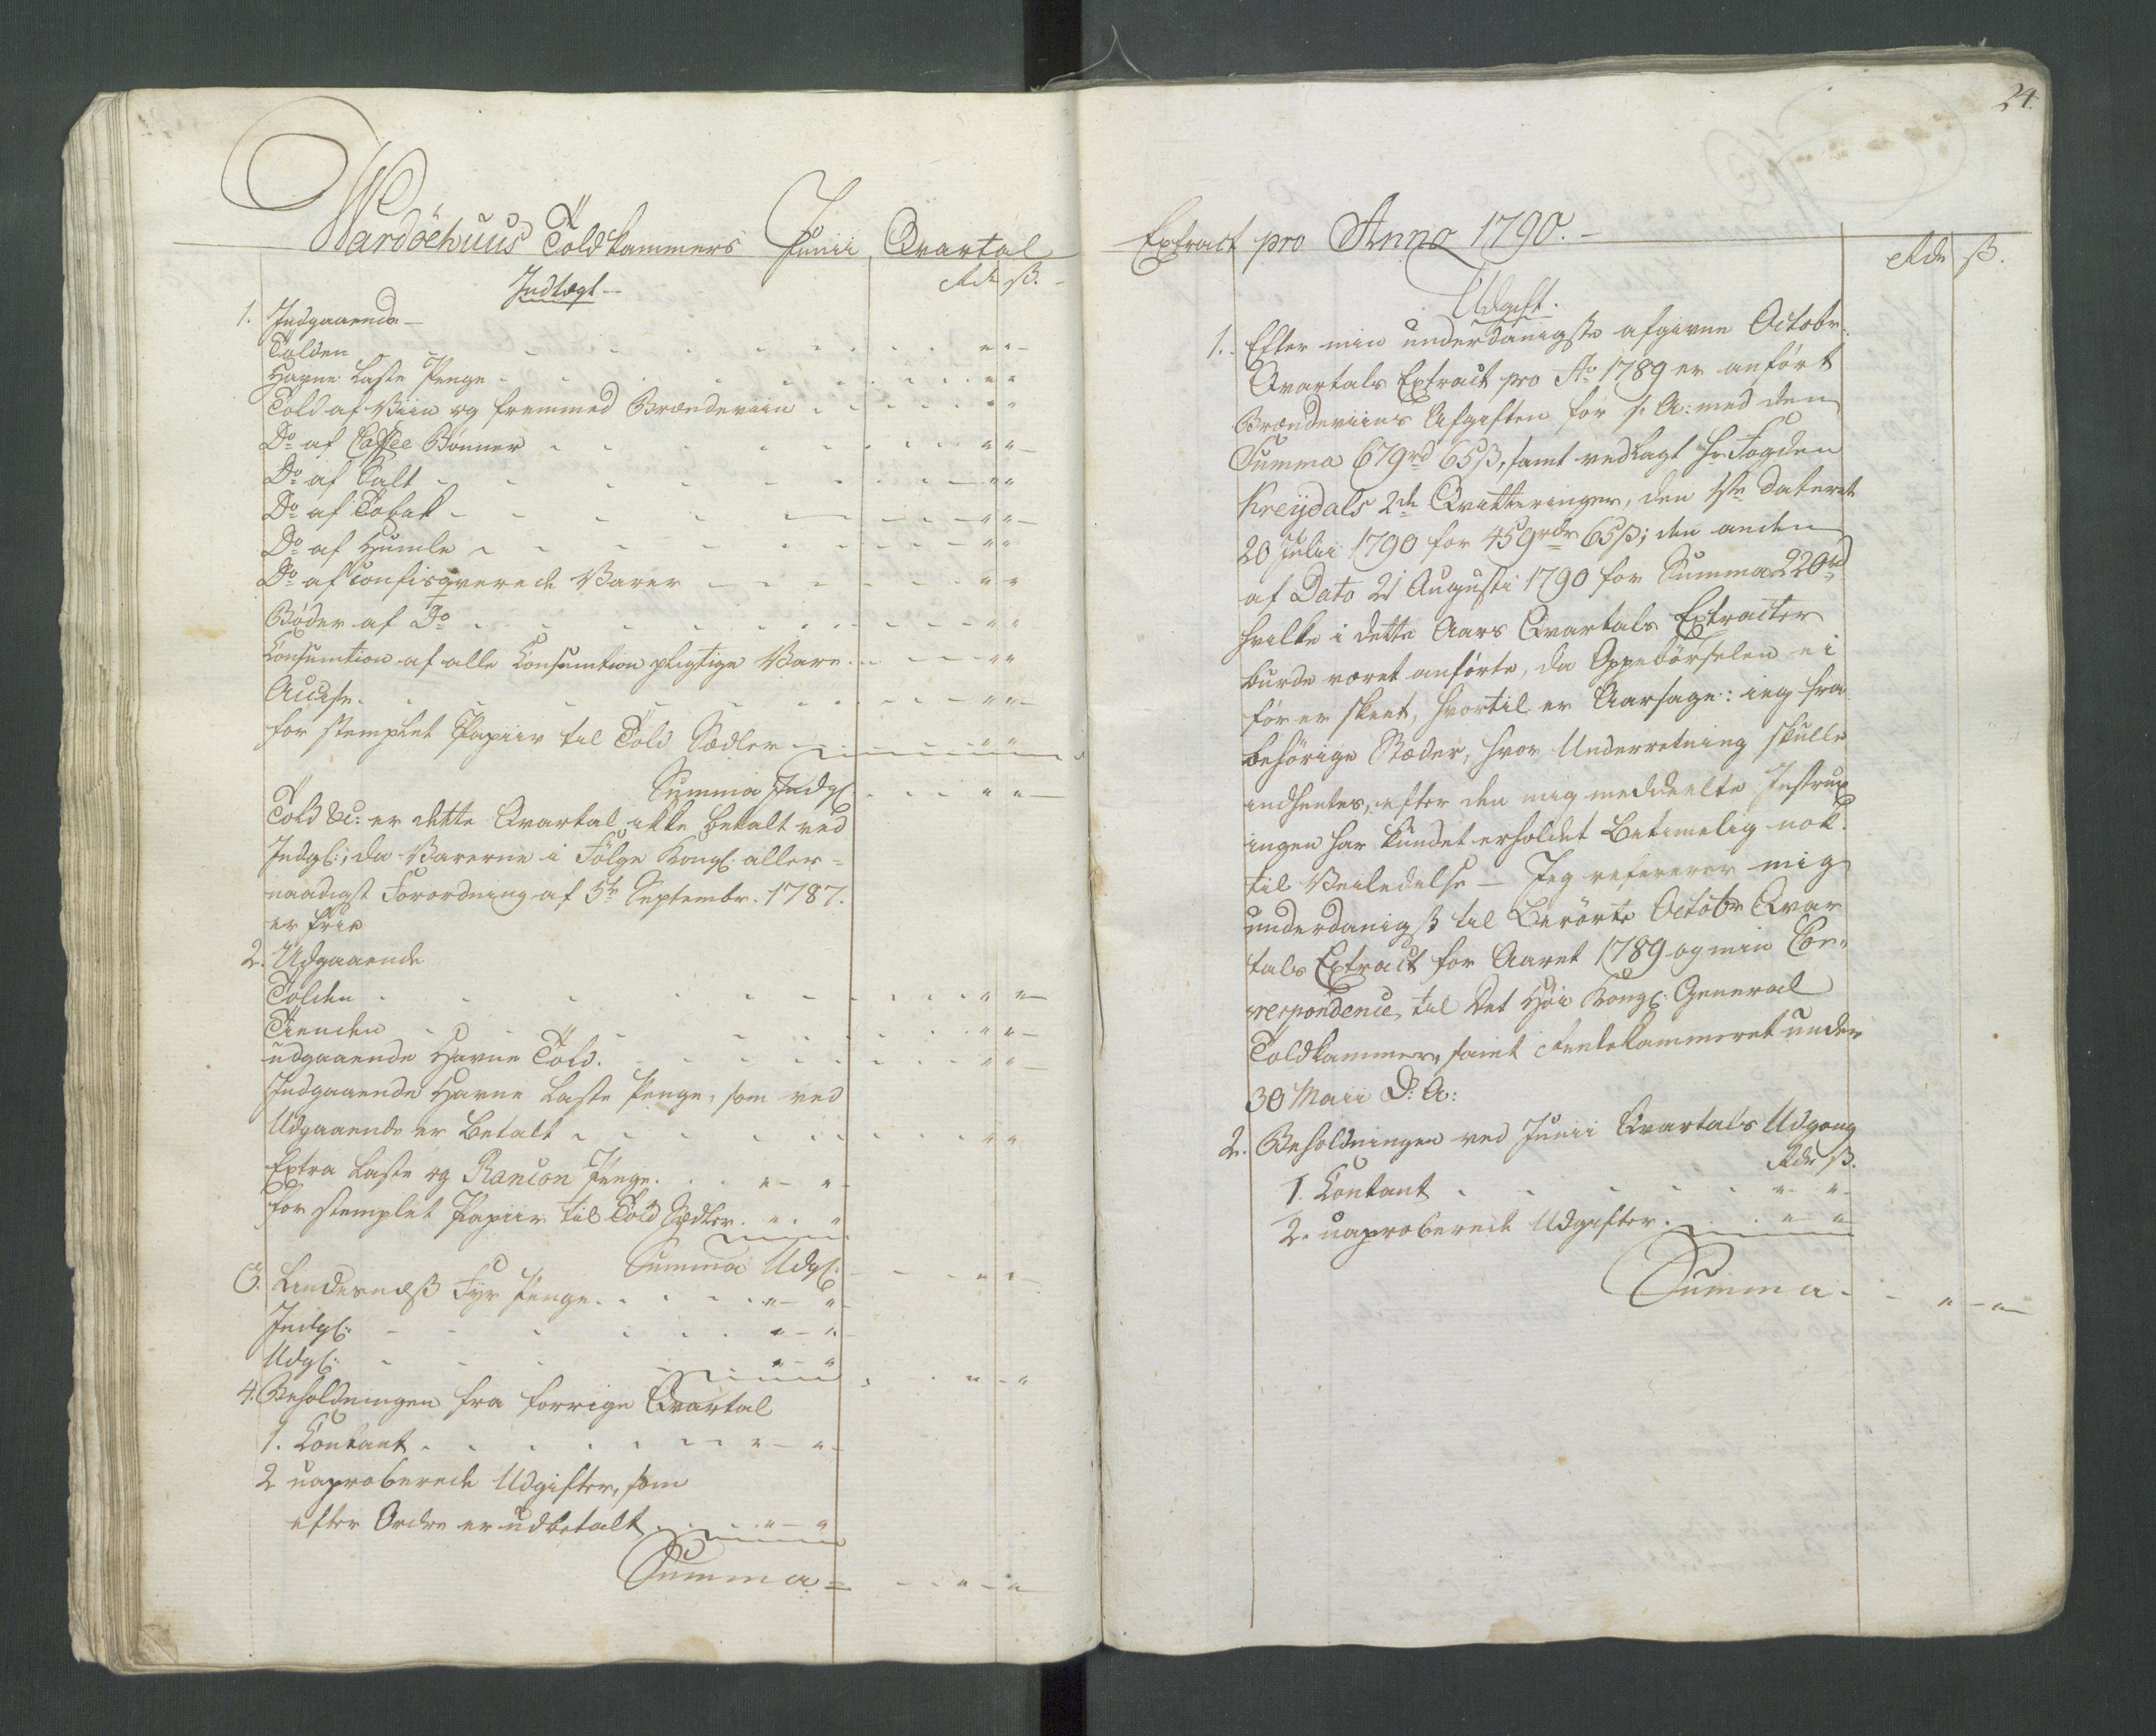 Wardöehuus Toldkammers Junii Qvartal
Indtægt
Rdr ß.
1. Indgaaende
Tolden " "
Havne Laste Penge " "
Told af Viin og fremmed Brændeviin " "
Do af Caffee Bönner " "
Do af Salt " "
Do af Tobak " "
Do af Humle " "
Do af Confisqverede Varer " "
Bøder af Do " "
Consumtion af alle Consumtion pligtige Vare " "
Accise " "
for stemplet Papiir til Told Sædler " "
Summa Indg: " "
Told &c: er dette Qvartal ikke betalt ved
Indg:, da Varerne i Fölge Kongl. aller-
naadigst Forordning af 5te Septembr. 1787.
er frie
2. Udgaaende
Tolden " "
Tienden " "
udgaaende Havne Told. " "
Indgaaende Havne Laste Penge, som ved
Udgaaende er Betalt " "
Extra Laste og Rancon Penge. " "
for stemplet Papiir til Told Sedler. " "
Summa Udg: " "
3. Lindernæß Fyr Penge. " "
Indg: " "
Udg: " " " "
4. Beholdningen fra forrige Qvartal
1. Contant " "
2 uaproberede Udgifter, som
efter Ordre er udbetalt " "
Summa " "
24.
Extract pro Anno 1790.
Rdr ß.
Udgift.
1. Efter min underdanigste afgivne Octobr.
Qvartals Extract pro Ao 1789 er anført
Brændeviins Afgiften for s: A: med den
Summa 679rd 65ß, samt vedlagt Hr Fogden
Kreydals 2de Qvitteringer, den 1ste dateret
20 Julii 1790 for 459rdr 65ß; den anden
af Dato 21 Augusti 1790 for Summa 220rd
hvilke i dette Aars Qvartals Extracter
burde været anförte, da Oppebörselen ei
för er skeet, hvortil er Aarsage: ieg fra
behörige Stæder, hvor Underretning skulle
indhentes, efter den mig meddeelte Instrux
ingen har kundet erholdet Betimelig nok
til Veiledelse – Jeg refererer mig
underdanigst til Berörte Octobr Qvar
tals Extract for Aaret 1789 og min Cor-
respondence til Det Høie Kongl: General
Toldkammer, samt Rentekammeret under
30 Maii D: A:
2. Beholdningen ved Junii Qvartals Udgang
Rdr ß.
1. Contant " "
2. uaproberede Udgifter. " "
Summa " "